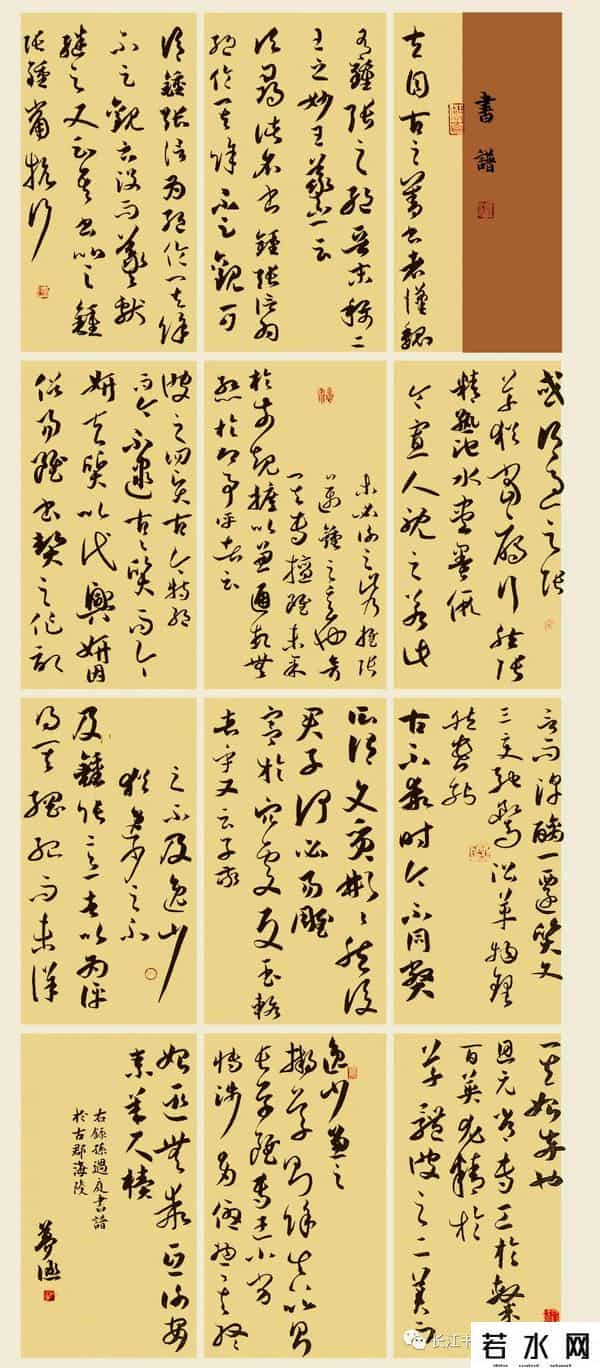 書譜
夫自古之善書者漢魏
有鍾張之絕晉末稱二
王之妙王羲之云
頃尋諸名書鍾張信為
絕倫其餘不足觀可
謂鍾張信為絕倫其餘
不足觀云沒而羲獻
繼之又云吾書比之鍾
張鍾當抗行
或謂過之張
草猶當雁行然張
精熟池水盡墨假
令寡人耽之若此
未必謝之此乃推張
邁鍾之意也考
其專擅雖未果
於前規摭以兼通故無
慙於即事評者云
彼之四賢古今特絕
而今不逮古古質而今
妍夫質以代興妍因
俗易雖書契之作記
言而淳醨一遷質文
三變馳騖沿革物理
然貴能
古不乖時今不同弊
所謂文質彬彬然後
君子何必易雕
宮於穴處反玉輅
者乎又云子敬
之不及逸少
猶逸少之不
及鍾張意者以為評
得其綱紀而未詳
其始卒也
且元常專工於隸
百英尤精於
草體彼之二美而
逸少兼之
擬草則餘真比真
長草雖專工小劣
博涉多優總其終
始匪無乖互謝安
素善尺牘
右錄孫過庭書譜
於古郡海陵
長江书
若水网